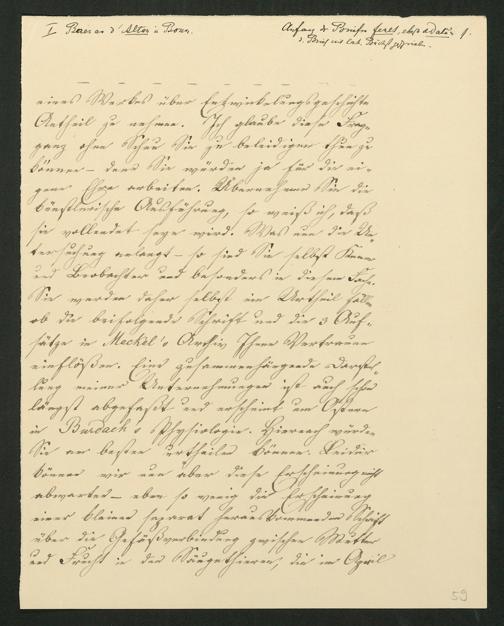 I Baer an d'Alton in Bonn.
Anfang des Briefes
eines Werkes über Entwickelungsgeschichte
Antheil zu nehmen. Ich glaube diese Frage
ganz ohne Scheu Sie zu beleidigen thun zu
können – denn Sie würden ja für die ei-
gene Ehre arbeiten. Übernehmen Sie die
künstlerische Ausführung, so weiß ich, daß
sie vollendet seyn wird. Was nun die Un-
tersuchung anlangt – so sind Sie selbst Kenner
und Beobachter und besonders in diesem Fach.
Sie werden daher selbst ein Urtheil
ob die beifolgende Schrift und die 3 Auf-
sätze in Meckel's Archiv Ihnen Vertrauen
einflößen. Eine zusammenhängende Darstel-
lung meiner Untersuchungen ist auch schon
längst abgefaßt und erscheint um Ostern
in Burdach's Physiologie. Hiernach würden
Sie am besten urtheilen können. Leider
können wir nun aber diese Erscheinung nicht
abwarten – eben so wenig die Erscheinung
einer kleinen separat herauskommenden Schrift
über die Gefäßverbindung zwischen Mutter
und Frucht in den Säugethieren, die im April
59